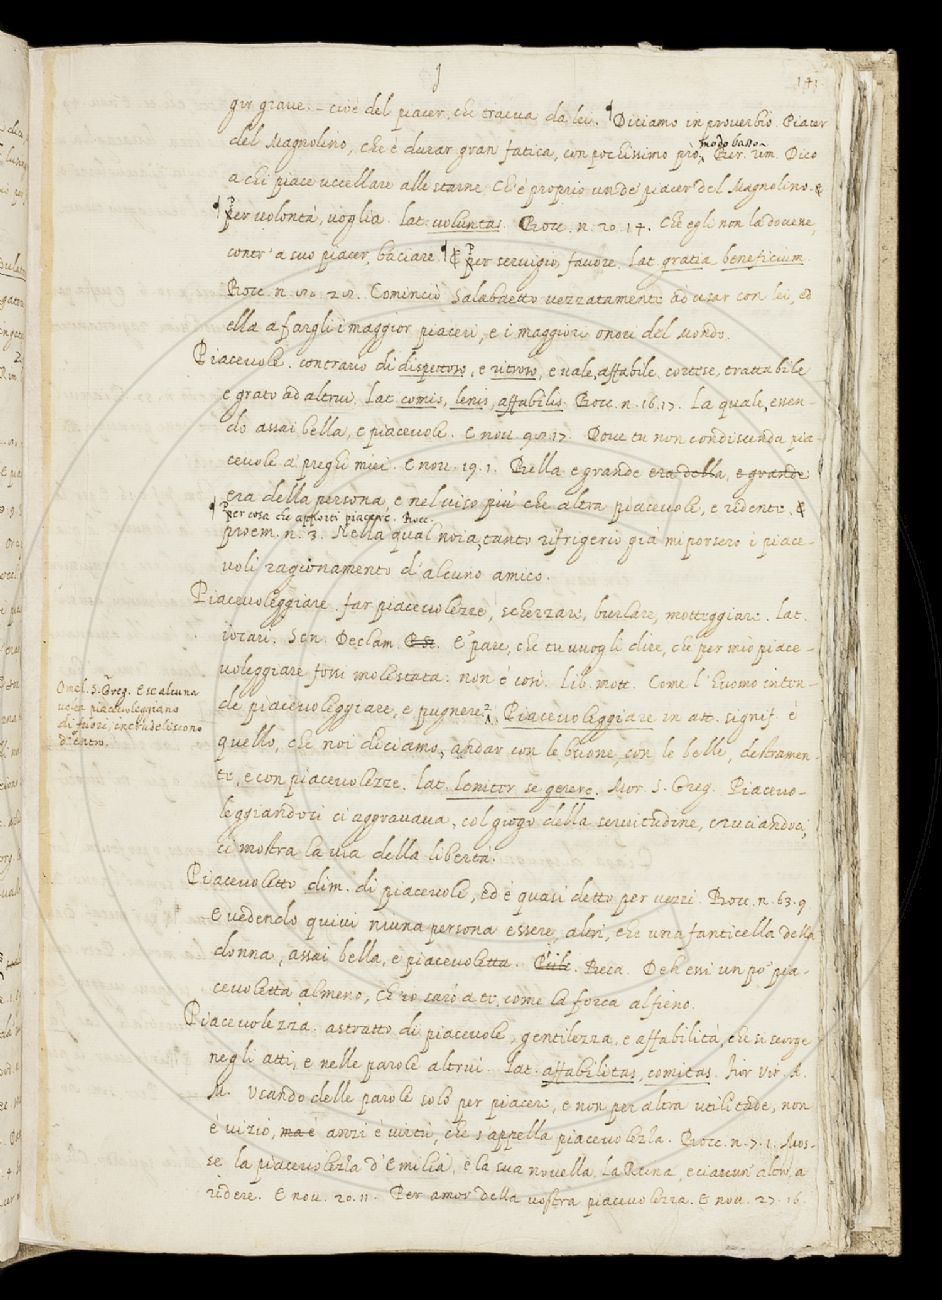 J
141.
gir graue: – cioè del piacer, che traeua da lei. ¶ Diciamo in prouerbio. Piacer
modo basso
del Magnolino, che è durar gran fatica, con pochissimo prò. Bur. rim. Dico
a chi piace uccellare alle starne che è proprio un de' piacer del Magnolino. ¶
¶ Per volontà, voglia. lat. voluntas. Bocc. n. 20. 14. Che egli non la doueue,
contr' a suo piacer, baciare. ¶ & Per seruigio, fauore. Lat. gratia beneficium.
Bocc. n. 80. 28. Cominciò Salabaetto vezzatamente ad usar con lei, ed
ella a fargli i maggior piaceri, e i maggiori onori del Mondo.
Piaceuole. contrario di dispettoso, e ritroso, e uale, affabile cortese, trattabile
e grato ad altrui. Lat. comis, lenis, affabilis. Bocc. n. 16. 17. La quale, essen-
do assai bella, e piaceuole. E nou. 98. 17. Doue tu non condiscenda pia-
ceuole a' preghi miei. E nou. 19. 1. Bella e grande era della, e grande
era della persona e nel uiso più che altra piaceuole, e ridente. &
¶ Per cosa che apporti piacere. Bocc.
proem. n. 3. Nella qual noia, tanto rifrigerio già mi porsero i piace-
uoli ragionamento d'alcuno amico.
Piaceuoleggiare. far piaceuolezze, scherzare, burlare, motteggiare. Lat.
iocari. Sen. Declam. E' pare, che tu uuogli dire, che per mio piace-
uoleggiare fossi molestata: non è così. lib. mott. Come l'huomo inten-
de piaceuoleggiare, e pugnere. Piaceuoleggiare in att. signif. è
quello, che noi diciamo, andar con le buone, con le belle, destramen-
te, e con piaceuolezze. Lat. leniter se gerere. Mor. S. Greg. Piaceuo-
leggiandoci ci aggrauaua, col giogo della seruitudine, cruciandoci,
ci mostra la uia della libertà.
Omel. S. Greg. E se alcuna
uolta piaceuoleggiano
di fuori, incrudeliscono
dentro.
Piaceuoletto. dim. di piaceuole, ed è quasi detto per uezzi. Bocc. n. 63. 9
E uedendo quiui niuna persona essere, altri, che una fanticella della
donna, assai bella, e piaceuoletta. Beca. Deh essi un po' pia-
ceuoletta almeno, ch' io sarò a te, come la forca al fieno.
Piaceuolezza. astratto di piaceuole, gentilezza, e affabilità, che si scorge
negli atti, e nelle parole altrui. Lat. affabilitas, comitas. Fior Vir. A.
M. Vsando delle parole solo per piacere, e non per altra utilitade, non
è uizio, ma è anzi è uirtù, che s'appella piaceuolezza. Bocc. n. 7. 1. Mos-
se la piaceuolezza d'Emilia, e la sua nouella. La Reina, e ciascun' altro, a
ridere. E nou. 20. 11. Per amor della uostra piaceuolezza. E nou. 27. 16.